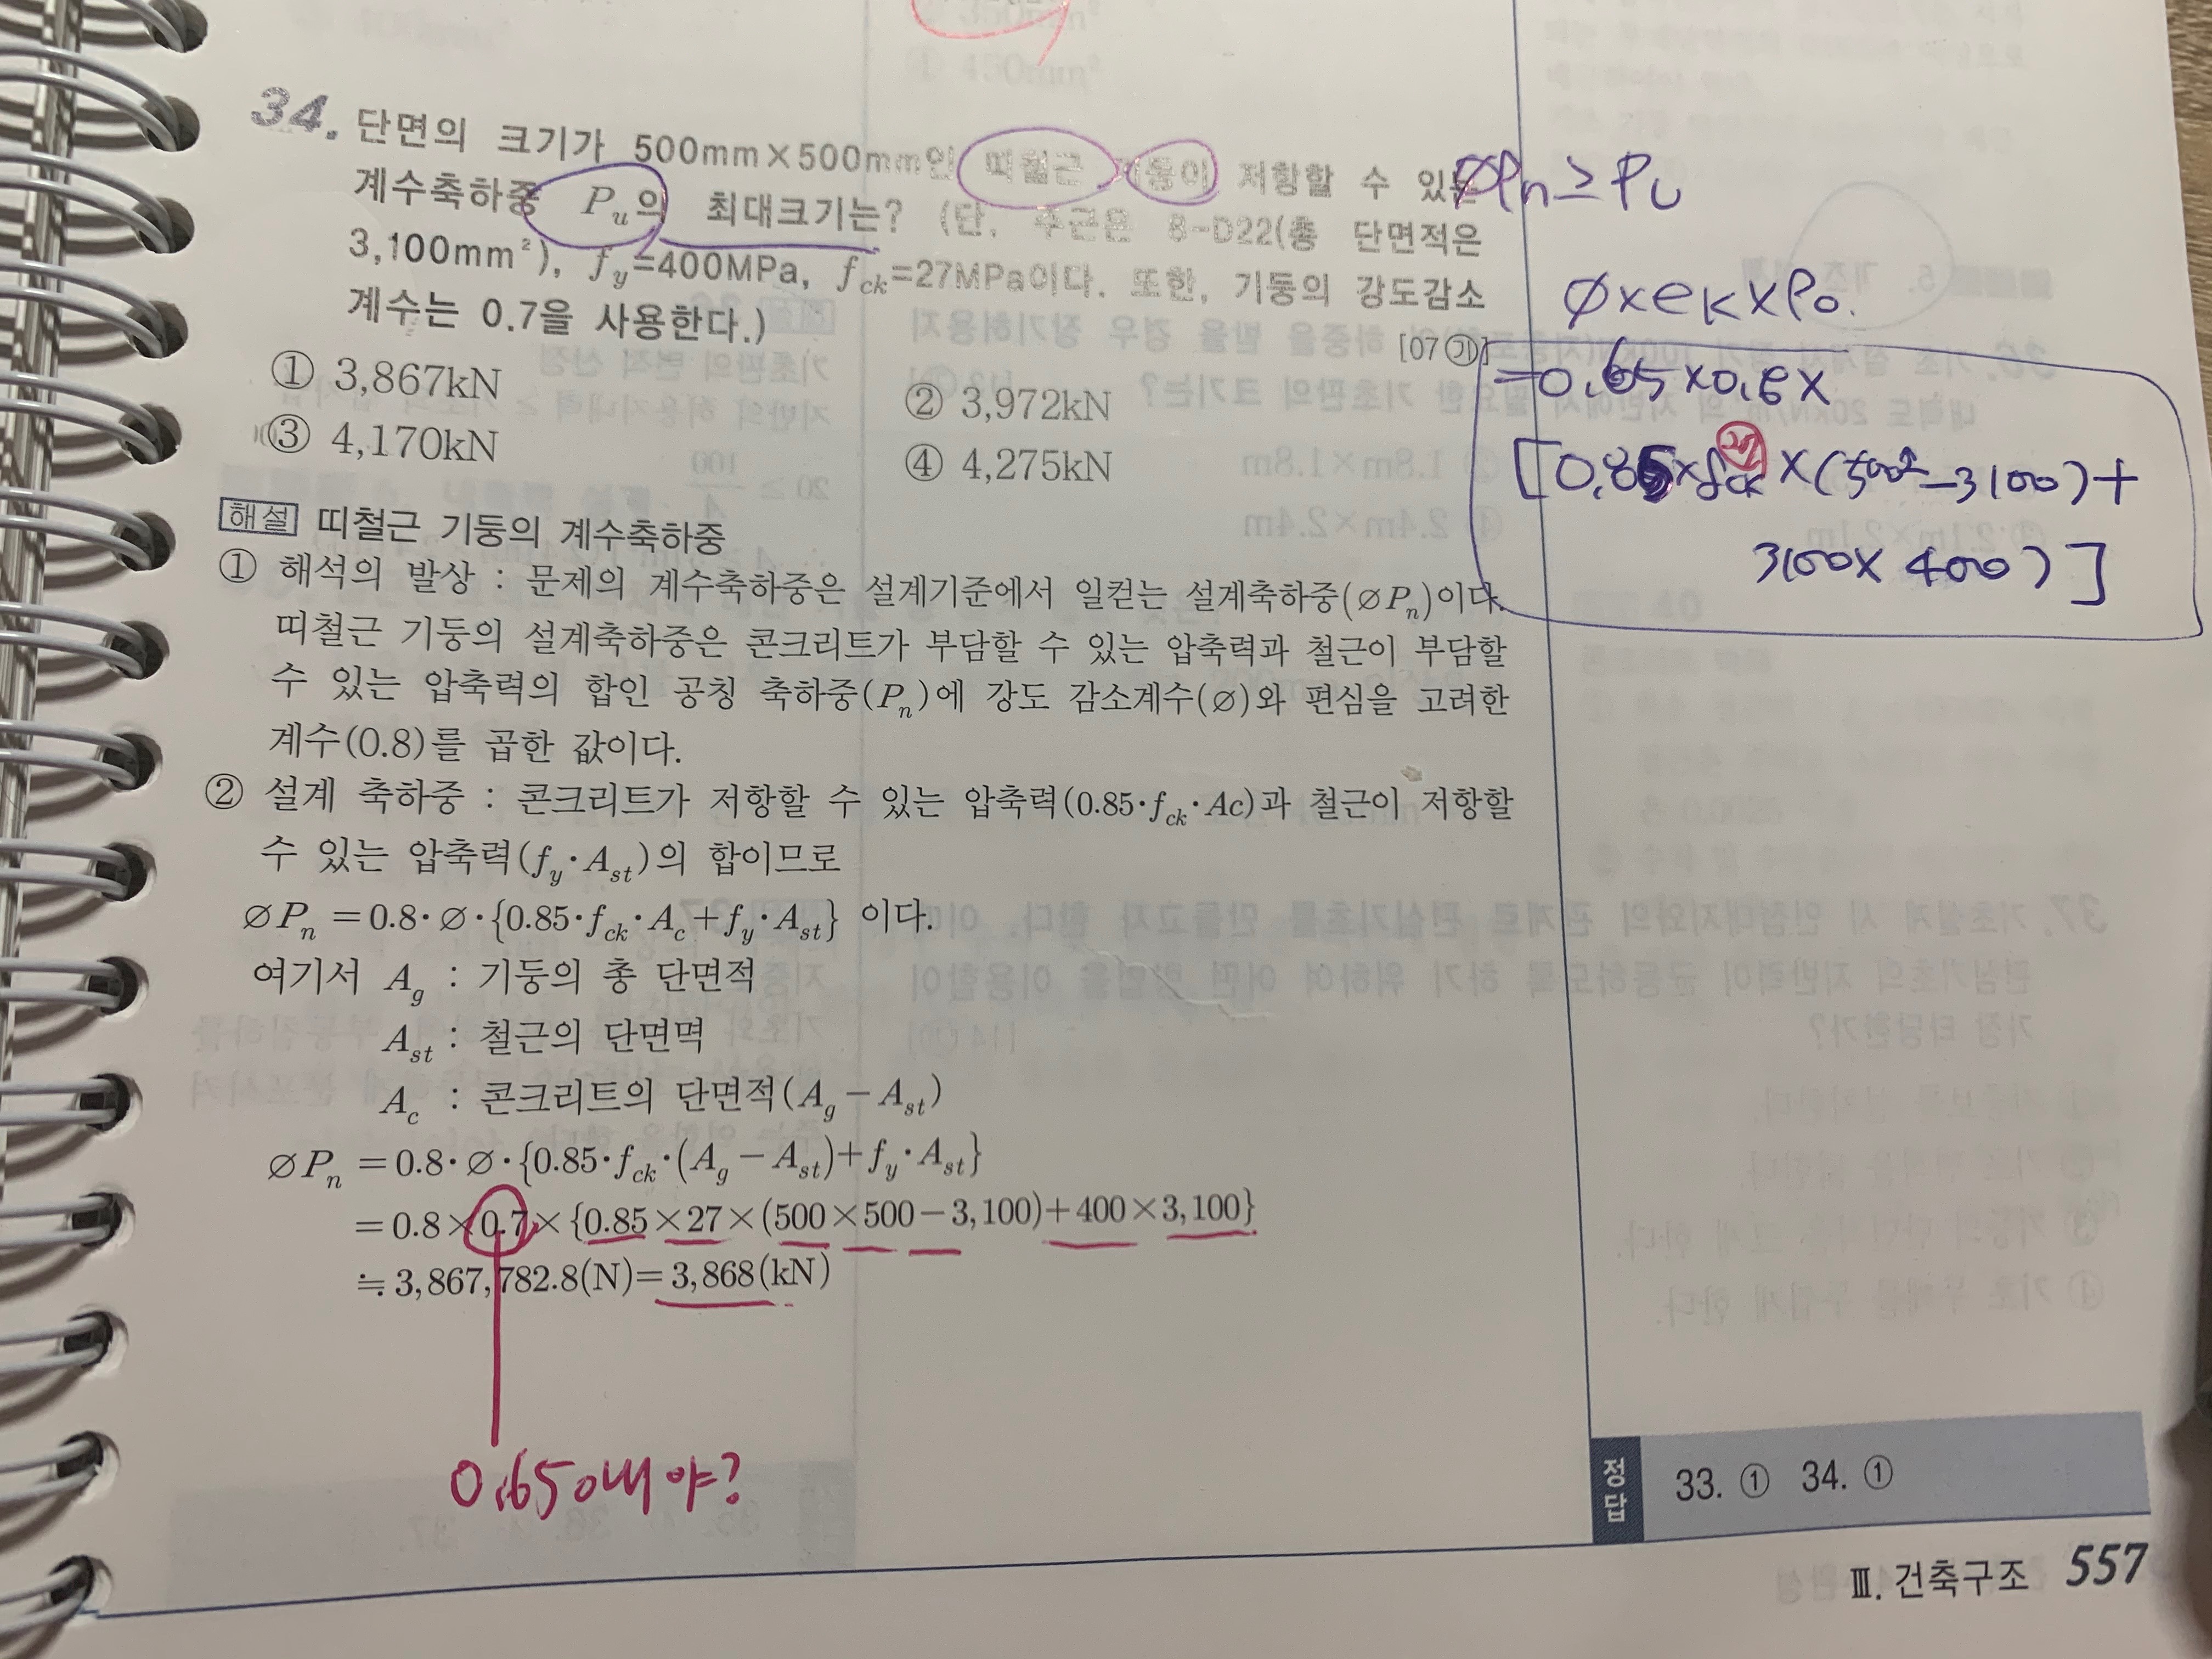 34. 단면의 크기가 500mm×500mm인 띠철근 기둥이 저항할 수 있는
계수축하중 Pu의 최대크기는? (단, 주근은 8-D22(총 단면적은
3,100mm²), fy=400MPa, fck=27MPa이다. 또한, 기둥의 강도감소
계수는 0.7을 사용한다.)
[07㉮]
① 3,867kN
② 3,972kN
③ 4,170kN
④ 4,275kN
ØPn≥Pu
Ø×eK×Po.
=0.65×0.8×
[0.85×fck 27 ×(500²-3100)+
3100×400)]
해설 띠철근 기둥의 계수축하중
① 해석의 발상 : 문제의 계수축하중은 설계기준에서 일컫는 설계축하중(∅Pn)이다.
띠철근 기둥의 설계축하중은 콘크리트가 부담할 수 있는 압축력과 철근이 부담할
수 있는 압축력의 합인 공칭 축하중(Pn)에 강도 감소계수(∅)와 편심을 고려한
계수(0.8)를 곱한 값이다.
② 설계 축하중 : 콘크리트가 저항할 수 있는 압축력(0.85·fck·Ac)과 철근이 저항할
수 있는 압축력(fy·Ast)의 합이므로
∅Pn=0.8·∅·{0.85·fck·Ac+fy·Ast} 이다.
여기서 Ag : 기둥의 총 단면적
Ast : 철근의 단면멱
Ac : 콘크리트의 단면적(Ag-Ast)
∅Pn=0.8·∅·{0.85·fck·(Ag-Ast)+fy·Ast}
=0.8×0.7×{0.85×27×(500×500-3,100)+400×3,100}
≒3,867,782.8(N)=3,868(kN)
0.65아니야?
정답 33. ① 34. ①
Ⅲ. 건축구조 557